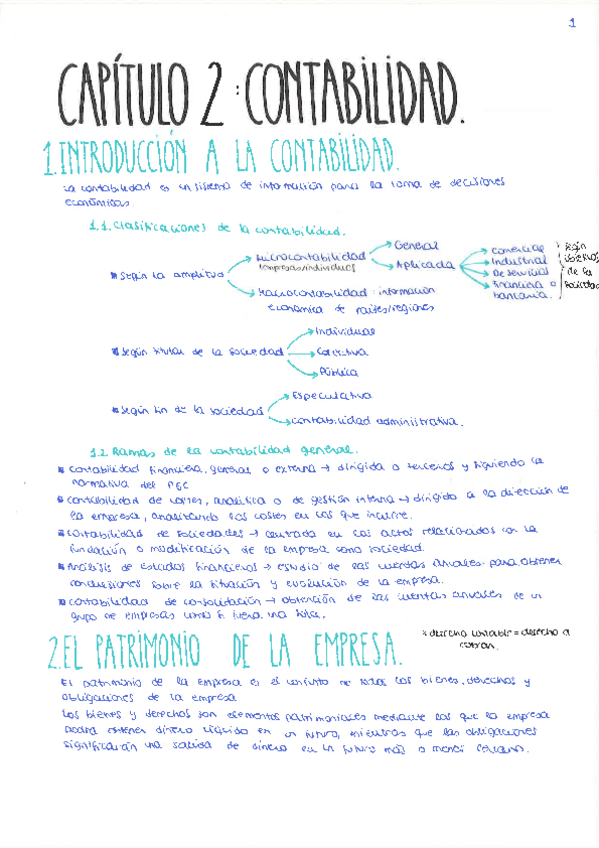 1
CAPÍTULO 2: CONTABILIDAD.
1. INTRODUCCIÓN A LA CONTABILIDAD.
La contabilidad es un sistema de información para la toma de decisiones
económicas.
1.1. Clasificaciones de la contabilidad.
Según la amplitud
Microcontabilidad
(empresas/individuos)
General
Aplicada
Comercial
Industrial
De servicios
Financiera o
bancaria.
según
objetivos
de la
sociedad
Macrocontabilidad: información
económica de países/regiones
Según titular de la sociedad
Individual
Colectiva
Pública
Según fin de la sociedad
Especulativa
Contabilidad administrativa.
1.2. Ramas de la contabilidad general.
Contabilidad financiera, general o externa → dirigida a terceros y siguiendo la
normativa del PGC
Contabilidad de costes, analítica o de gestión interna → dirigido a la dirección de
la empresa, analizando los costes en los que incurre.
Contabilidad de sociedades → centrada en los actos relacionados con la
fundación o modificación de la empresa como sociedad.
Análisis de estados financieros → estudio de las cuentas anuales para obtener
conclusiones sobre la situación y evolución de la empresa.
Contabilidad de consolidación → obtención de las cuentas anuales de un
grupo de empresas como si fuera una sola.
2. EL PATRIMONIO DE LA EMPRESA.
* derecho contable = derecho a
cobrar.
El patrimonio de la empresa es el conjunto de todos los bienes, derechos y
obligaciones de la empresa
Los bienes y derechos son elementos patrimoniales mediante los que la empresa
podrá obtener dinero líquido en un futuro, mientras que las obligaciones
significarán una salida de dinero en un futuro más o menos cercano.